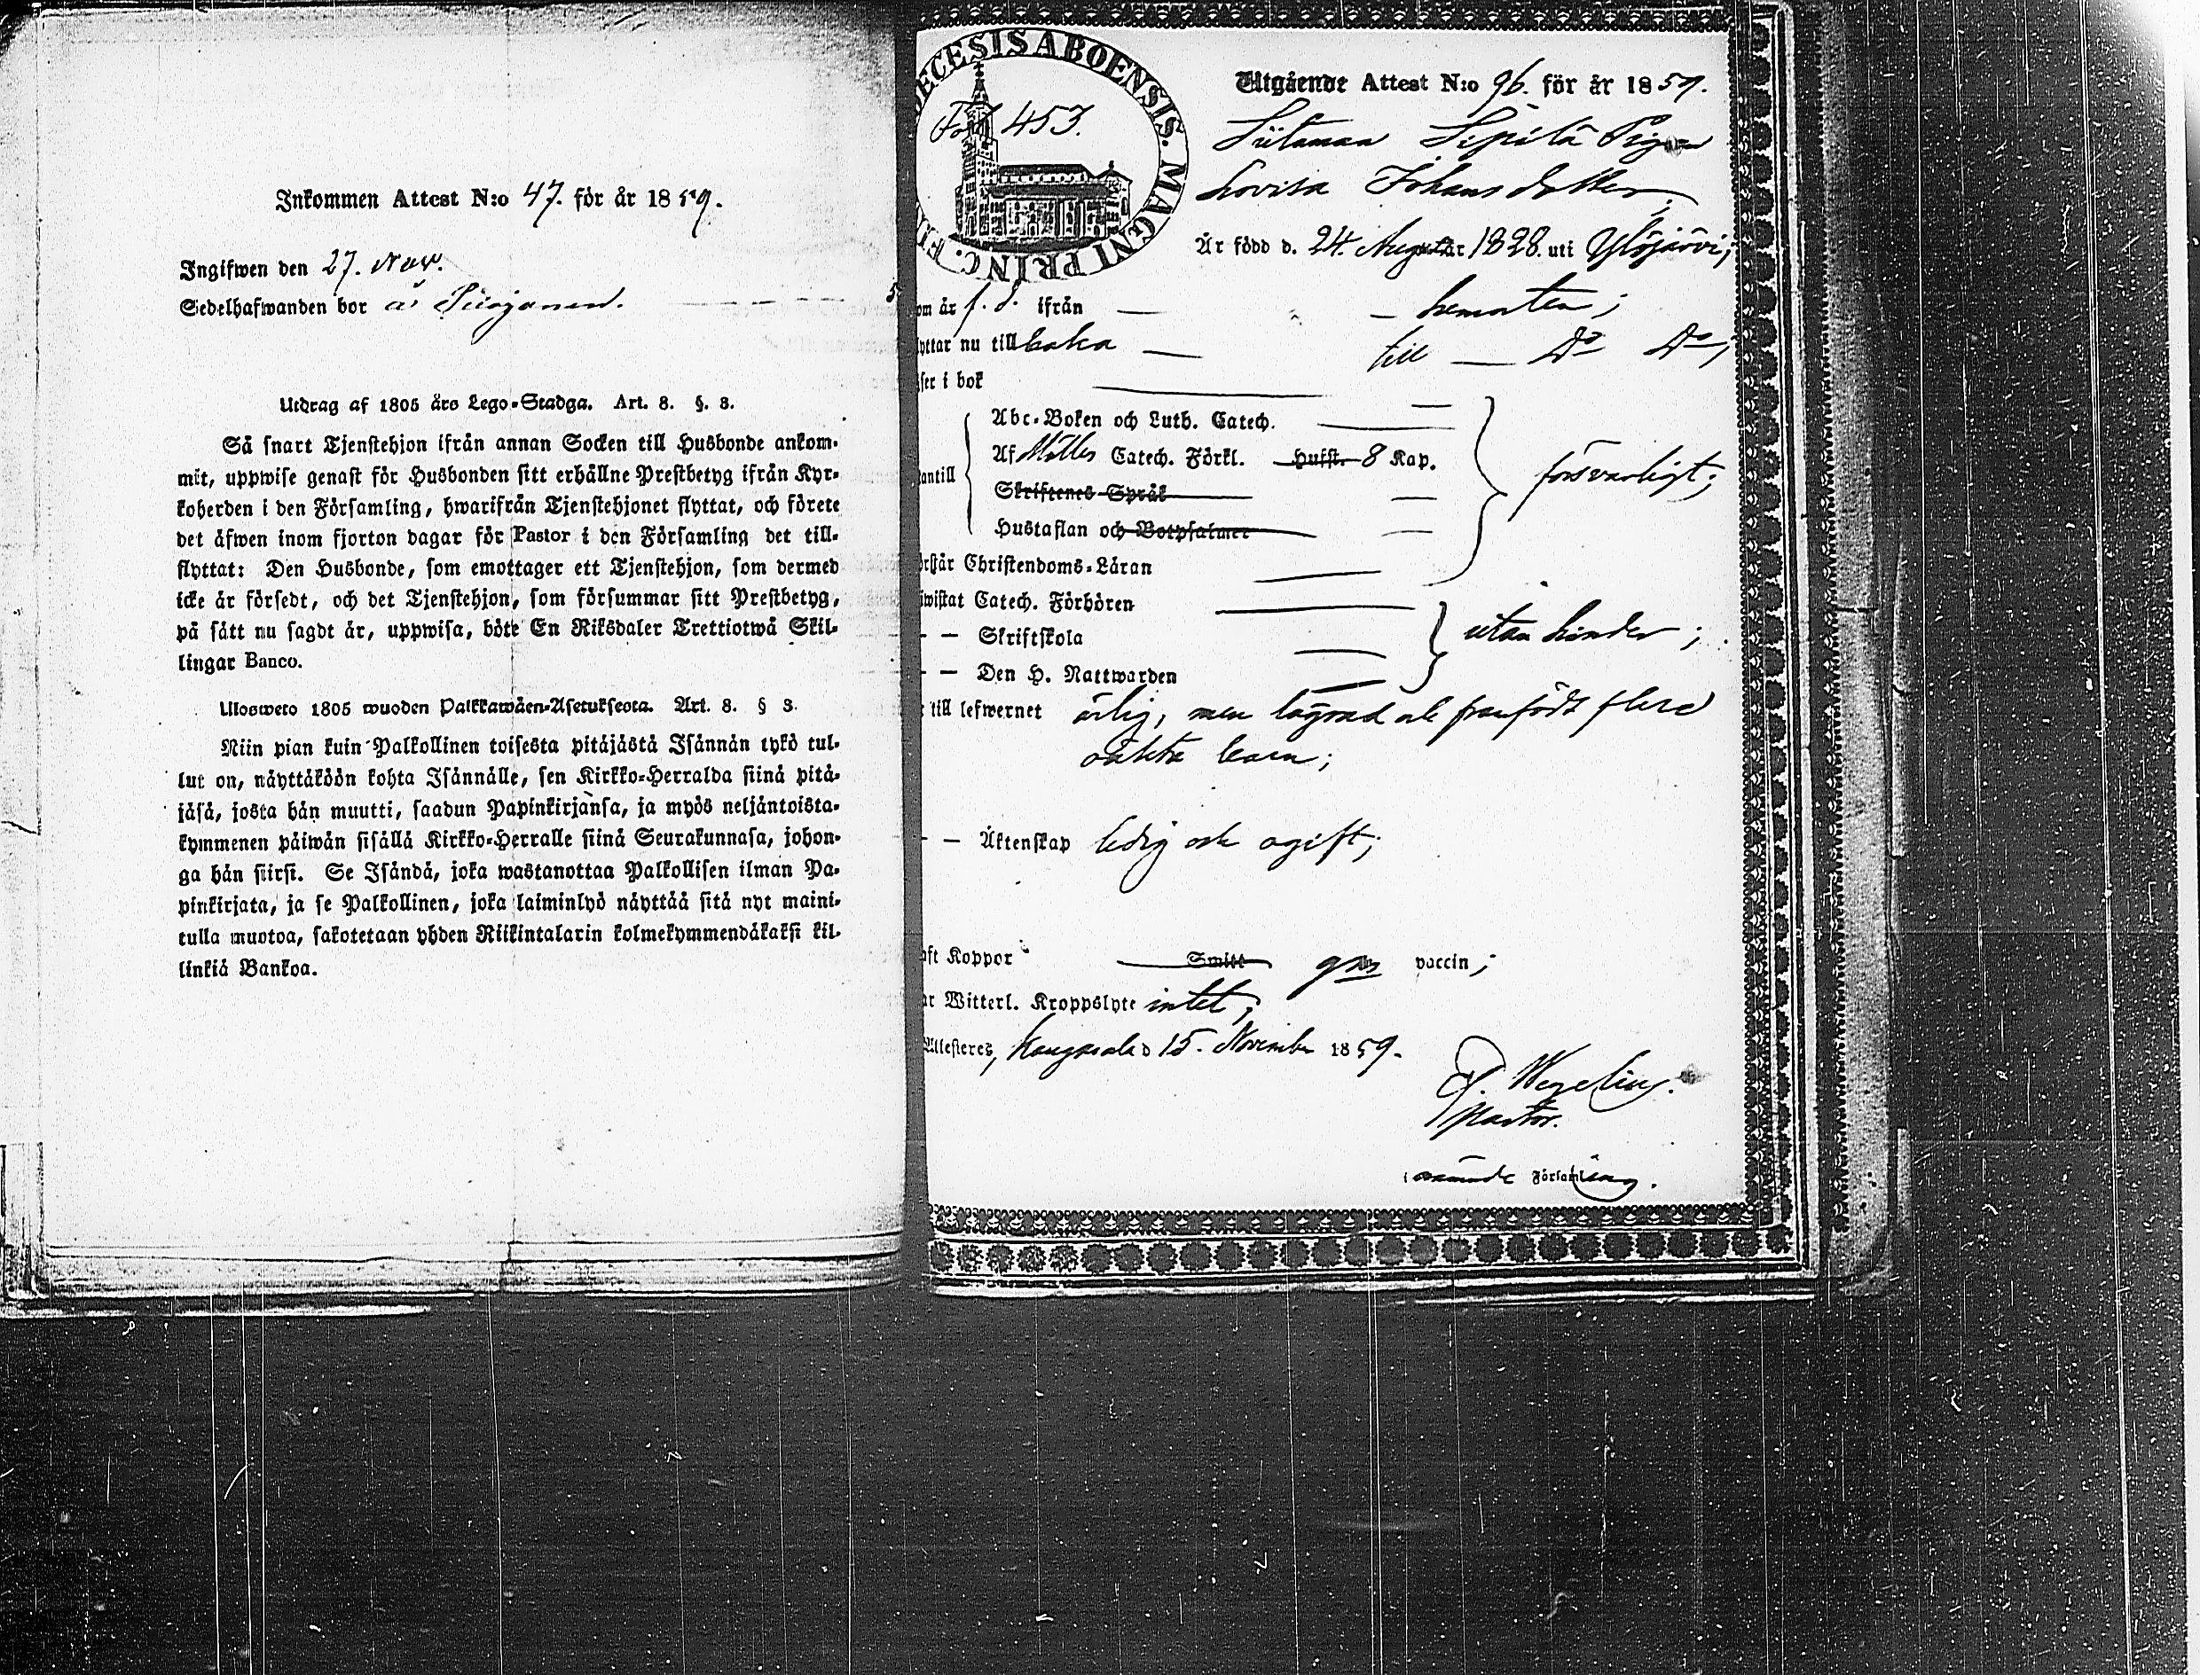 Inkommen Attest N:o 47. för år 1859.
Ingifwen den 27. Nov.
Sedelhafwanden bor å
Utdrag af 1805 års Lego-Stadga. Art. 8. §. 3.
Så snart Tjenstehjon ifrån annan Socken till Husbonde ankom-
mit, uppwise genast för Husbonden sitt erhållne Prestbetyg ifrån Kyr-
koherden i den Församling, hwarifrån Tjenstehjonet flyttat, och förete
det åfwen inom fjorton dagar för Pastor i den Församling det till-
flyttat: Den Husbonde, som emottager ett Tjenstehjon, som dermed
icke år försedt, och det Tjenstehjon, som försummar sitt Prestbetyg,
på sått nu sagdt år, uppwisa, böte En Riksdaler Trettiotwå Skil-
lingar Banco.
Ulosweto 1805 wuoden Palkkawåen-Asetuksesta. Art. 8. § 3.
Niin pian kuin Palkollinen toisesta pitåjåstå Isånnån tykö tul-
lut on, nåyttåköön kohta Isånnålle, sen Kirkko-Herralda siinå pitå-
jåså, josta hån muutti, saadun Papinkirjansa, ja myös neljåntoista-
kymmenen påiwån sisållå Kirkko-Herralle siinå Seurakunnasa, johon-
ga hån siirsi. Se Isåndå, joka wastanottaa Palkollisen ilman Pa-
pinkirjata, ja se Palkollinen, joka laiminlyö nåyttåå sitå nyt maini-
tulla muotoa, sakotetaan yhden Riikintalarin kolmekymmendåkaksi kil-
linkiå Bankoa.
ECESIS ABOENSIS. MAGNI PRINC. FI
Fol 453.
Utgående Attest N:o 96. för år 1859.
Siitaman Sipilä Pigan
Lovisa Johansdotter,
Är född d. 24. August år 1828. uti Ylöjärvi;
om år f. å. ifrån — — hemorten;
yttar nu till baka — till — Do Do;
ser i bok
Abc-Boken och Luth. Catech.
Af Möllers Catech. Förkl. Husst. 8 Kap.
antill
försvarligt;
Skriftenes Språk
Hustaflan och Botpsalmer
rstår Christendoms-Låran
wistat Catech. Förhören
— — Skriftskola
utan hinder;
— — Den H. Nattwarden
till lefwernet ärlig, men lägrad och framfödt flere
oäkta barn;
— — Äktenskap ledig och ogift;
aft Koppor Smitt gm vaccin;
ar Witterl. Kroppslyte intet;
Attesteras, Kangasala d 15. November 1859.
Wegelius.
Pastor.
i nämnde Församling.